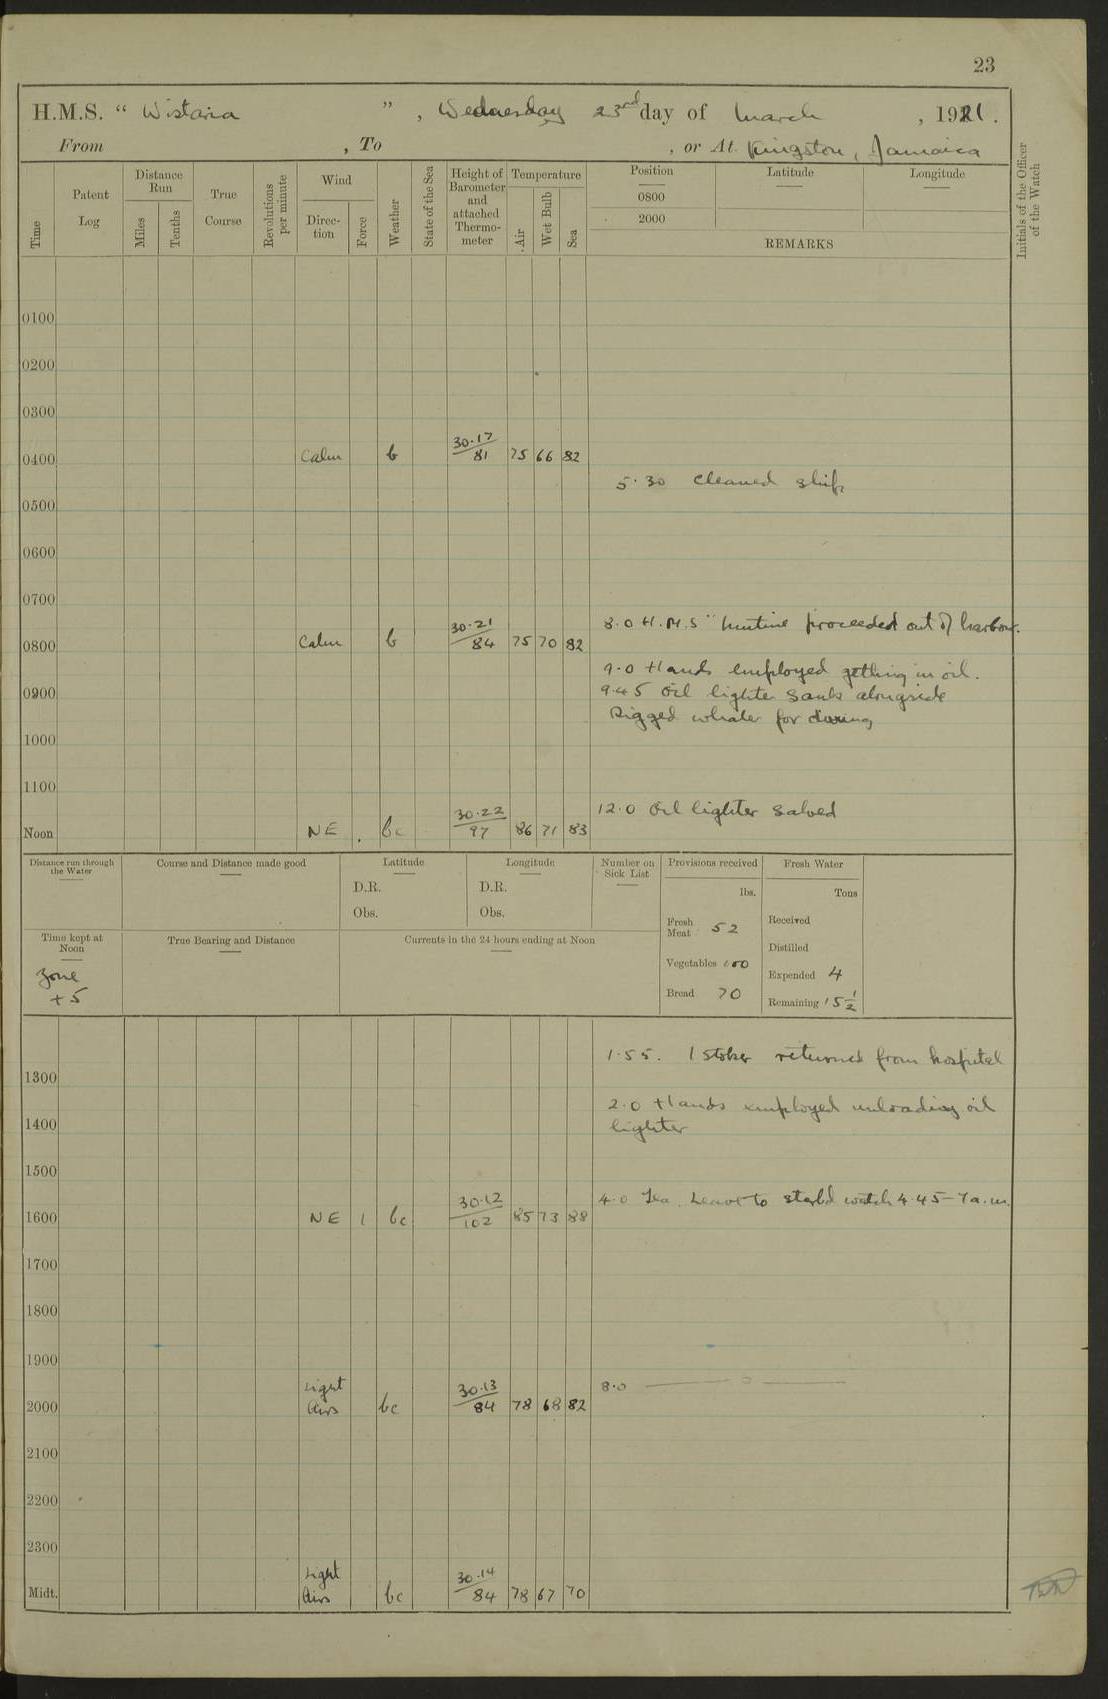 23
H.M.S. “ Wistaria ” , Wednesday 23rd day of March , 1921 .
From , To , or At Kingston, Jamaica
Time
Patent Log
Distance Run
Miles
Tenths
True Course
Revolutions per minute
Wind
Direc- tion
Force
Weather
State of the Sea
Height of Barometer and attached Thermo- meter
Temperature
Air
Wet Bulb
Sea
Position
Latitude
Longitude
0800
2000
REMARKS
Initials of the Officer of the Watch
0100
0200
0300
0400 Calm b 30.17/81 75 66 82
5.30 Cleaned ship
0500
0600
0700
8.0 H.M.S "Mutine proceeded out of harbour.
0800 Calm b 30.21/84 75 70 82
9.0 Hands employed getting in oil.
0900
9.45 Oil lighter sank alongside
Rigged whaler for diving
1000
1100
12.0 Oil lighter salved
Noon NE . bc 30.22/97 86 71 83
Distance run through the Water
Course and Distance made good
Latitude
D.R.
Obs.
Longitude
D.R.
Obs.
Number on Sick List
Provisions received
lbs.
Fresh Meat 52
Vegetables 100
Bread 70
Fresh Water
Tons
Received
Distilled
Expended 4
Remaining 15½
Time kept at Noon
Zone
+5
True Bearing and Distance
Currents in the 24 hours ending at Noon
1.55. 1 Stoker returned from hospital
1300
2.0 Hands employed unloading oil
lighter
1400
1500
4.0 Tea. Leave to starbd watch 4.45–7a.m.
1600 NE 1 bc 30.12/102 85 73 88
1700
1800
1900
8.0 — o —
2000 Light Airs bc 30.13/84 78 68 82
2100
2200
2300
Midt. Light Airs bc 30.14/84 78 67 70